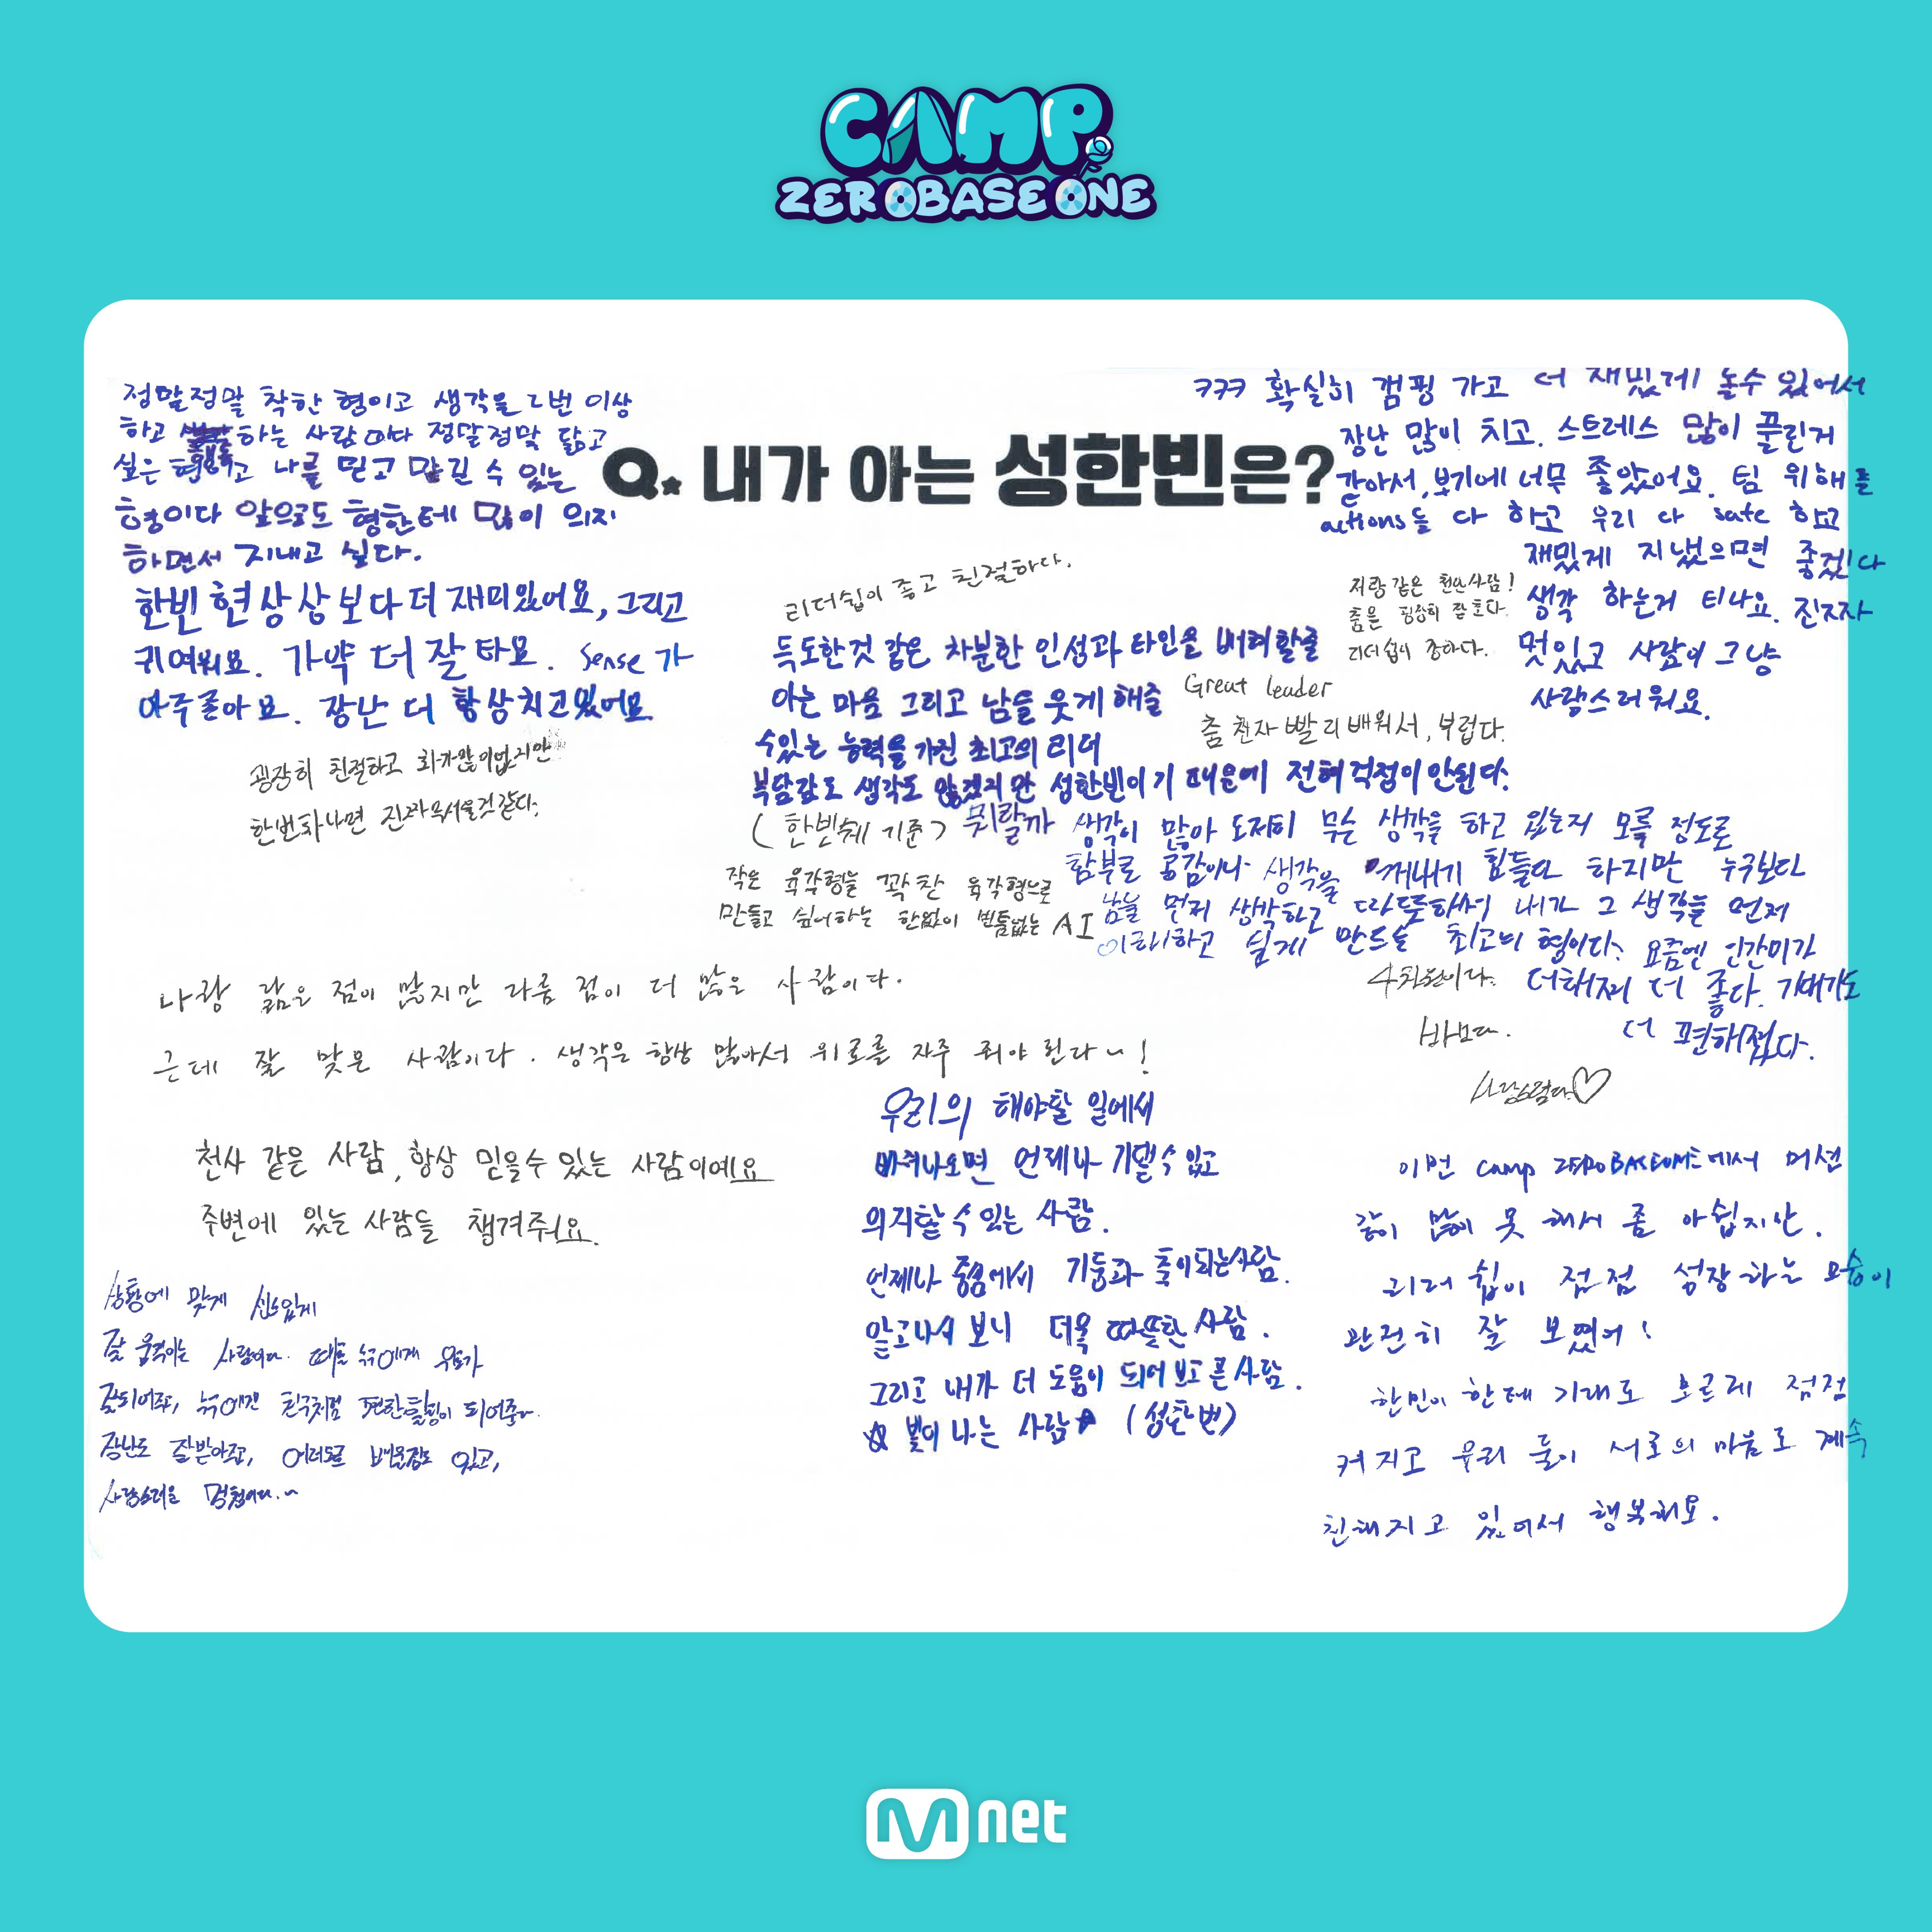 CAMP
ZEROBASEONE
Q. 내가 아는 성한빈은?
정말정말 착한 형이고 생각을 2번 이상
하고 하는 사람이다 정말정말 닮고
싶은 형이고 나를 믿고 맡길 수 있는
형이다 앞으로도 형한테 많이 의지
하면서 지내고 싶다.
한빈 현상상보다 더 재미있어요, 그리고
귀여워요. 가약 더 잘 타요. Sense가
아주좋아요. 장난 더 항상치고있어요
굉장히 친절하고 화가많이없지만
한번화나면 진짜무서울것같다.
리더쉽이 좋고 친절하다.
득도한것 같은 차분한 인성과 타인을 배려할줄
아는 마음 그리고 남들 웃게 해줄
수있는 능력을 가진 최고의 리더
부담감도 생각도 많겠지만 성한빈이기 때문에 전혀걱정이안된다.
저랑 같은 천산사람!
춤은 굉장히 잘 춘다.
리더쉽이 좋하다.
Great leader
춤 진자 빨리 배워서, 부럽다.
ㅋㅋㅋ 확실히 캠핑 가고 더 재밌게 놀수 있어서
장난 많이 치고. 스트레스 많이 풀린거
같아서, 보기에 너무 좋았어요. 팀 위해를
actions들 다 하고 우리 다 safe 하고
재밌게 지냈으면 좋겠다
생각 하는거 티나요. 진자자
멋있고 사람이 그냥
사랑스러워요.
(한빈쉐 기준)
작은 육각형을 꽉찬 육각형으로
만들고 싶어하는 한없이 빈틈없는 AI
뭐랄까 생각이 많아 도저히 무슨 생각을 하고 있는지 모를 정도로
함부로 공감이나 생각을 꺼내기 힘들다 하지만 누구보다
남을 먼저 생각하고 따뜻해서 내가 그 생각을 먼저
이해하고 싶게 만드는 최고의 형이다. 요즘엔 인간미가
더해져 더 좋다. 기대기도
더 편해졌다.
4차원이다.
바보다.
사랑스럽다♡
나랑 닮은 점이 많지만 다름 점이 더 많은 사람이다.
근데 잘 맞은 사람이다. 생각은 항상 많아서 위로를 자주 줘야 된다~!
천사 같은 사람, 항상 믿을수 있는 사람이예요
주변에 있는 사람들 챙겨줘요.
상황에 맞게 센스있게
잘 움직이는 사람이다. 때로 누구에게 위로가
잘되어주고, 누구에겐 친구처럼 편한 이 되어준다.
장난도 잘받아주고, 여러모로 배울점도 있고,
사랑스러운 멍청이다.~
우리의 해야할 일에서
빠져나오면 언제나 기댈수 있고
의지할 수 있는 사람.
언제나 중심에서 기둥과 축이되는사람.
알고나서 보니 더욱 따뜻한 사람.
그리고 내가 더 도움이 되어 보고픈사람.
☆ 빛이 나는 사람★ (성한빈)
이번 camp ZEROBASEONE에서 머션
같이 많이 못 해서 좀 아쉽지산.
리더 쉽이 점점 성장하는 모습이
관전히 잘 보였어!
한민이 한테 기대도 모르레 점점
커지고 우리 둘이 서로의 마음로 계속
친해지고 있어서 행복해요.
Mnet